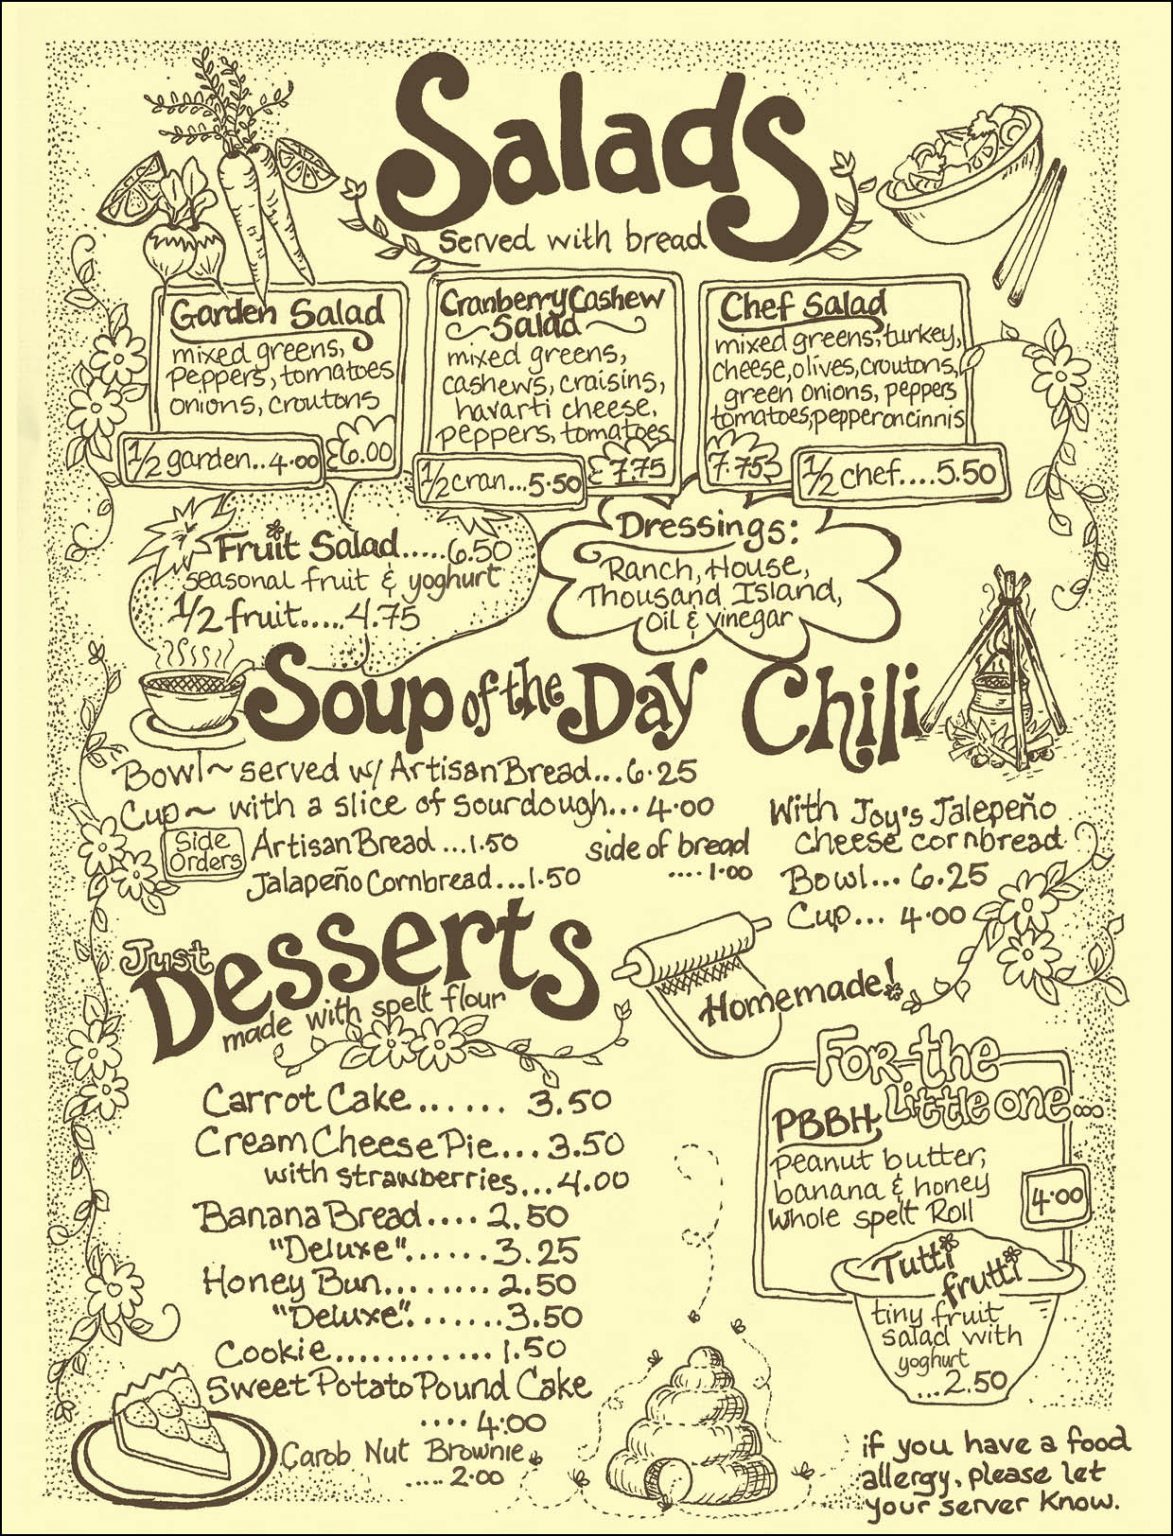 Salads
Served with bread
Garden Salad
mixed greens,
Peppers, tomatoes
onions, croutons
6.00
1/2 garden..4.00
Cranberry Cashew
Salad
mixed greens,
cashews, craisins,
havarti cheese,
peppers, tomatoes
7.75
1/2 cran...5.50
Chef Salad
mixed greens, turkey,
cheese, olives, croutons,
green onions, peppers
tomatoes, pepperoncinnis
7.75
1/2 chef....5.50
Fruit Salad.....6.50
seasonal fruit & yoghurt
1/2 fruit.....4.75
Dressings:
Ranch, House,
Thousand Island,
Oil & vinegar
Soup of the Day
Bowl~ served w/ Artisan Bread...6.25
Cup~ with a slice of sourdough...4.00
Side
Orders
Artisan Bread ...1.50
Jalapeño Cornbread...1.50
side of bread
....1.00
Chili
With Joy's Jalepeño
Cheese cornbread
Bowl... 6.25
Cup... 4.00
Just
Desserts
made with spelt flour
Homemade!
Carrot Cake....... 3.50
Cream Cheese Pie...3.50
with strawberries...4.00
Banana Bread....2.50
"Deluxe"......3.25
Honey Bun........2.50
"Deluxe".......3.50
Cookie............1.50
Sweet Potato Pound Cake
....4.00
Carob Nut Brownie
.....2.00
For the
Little one...
PBBH
peanut butter,
banana & honey
Whole spelt Roll
4.00
Tutti
frutti
tiny fruit
salad with
yoghurt
...2.50
if you have a food
allergy, please let
your server know.